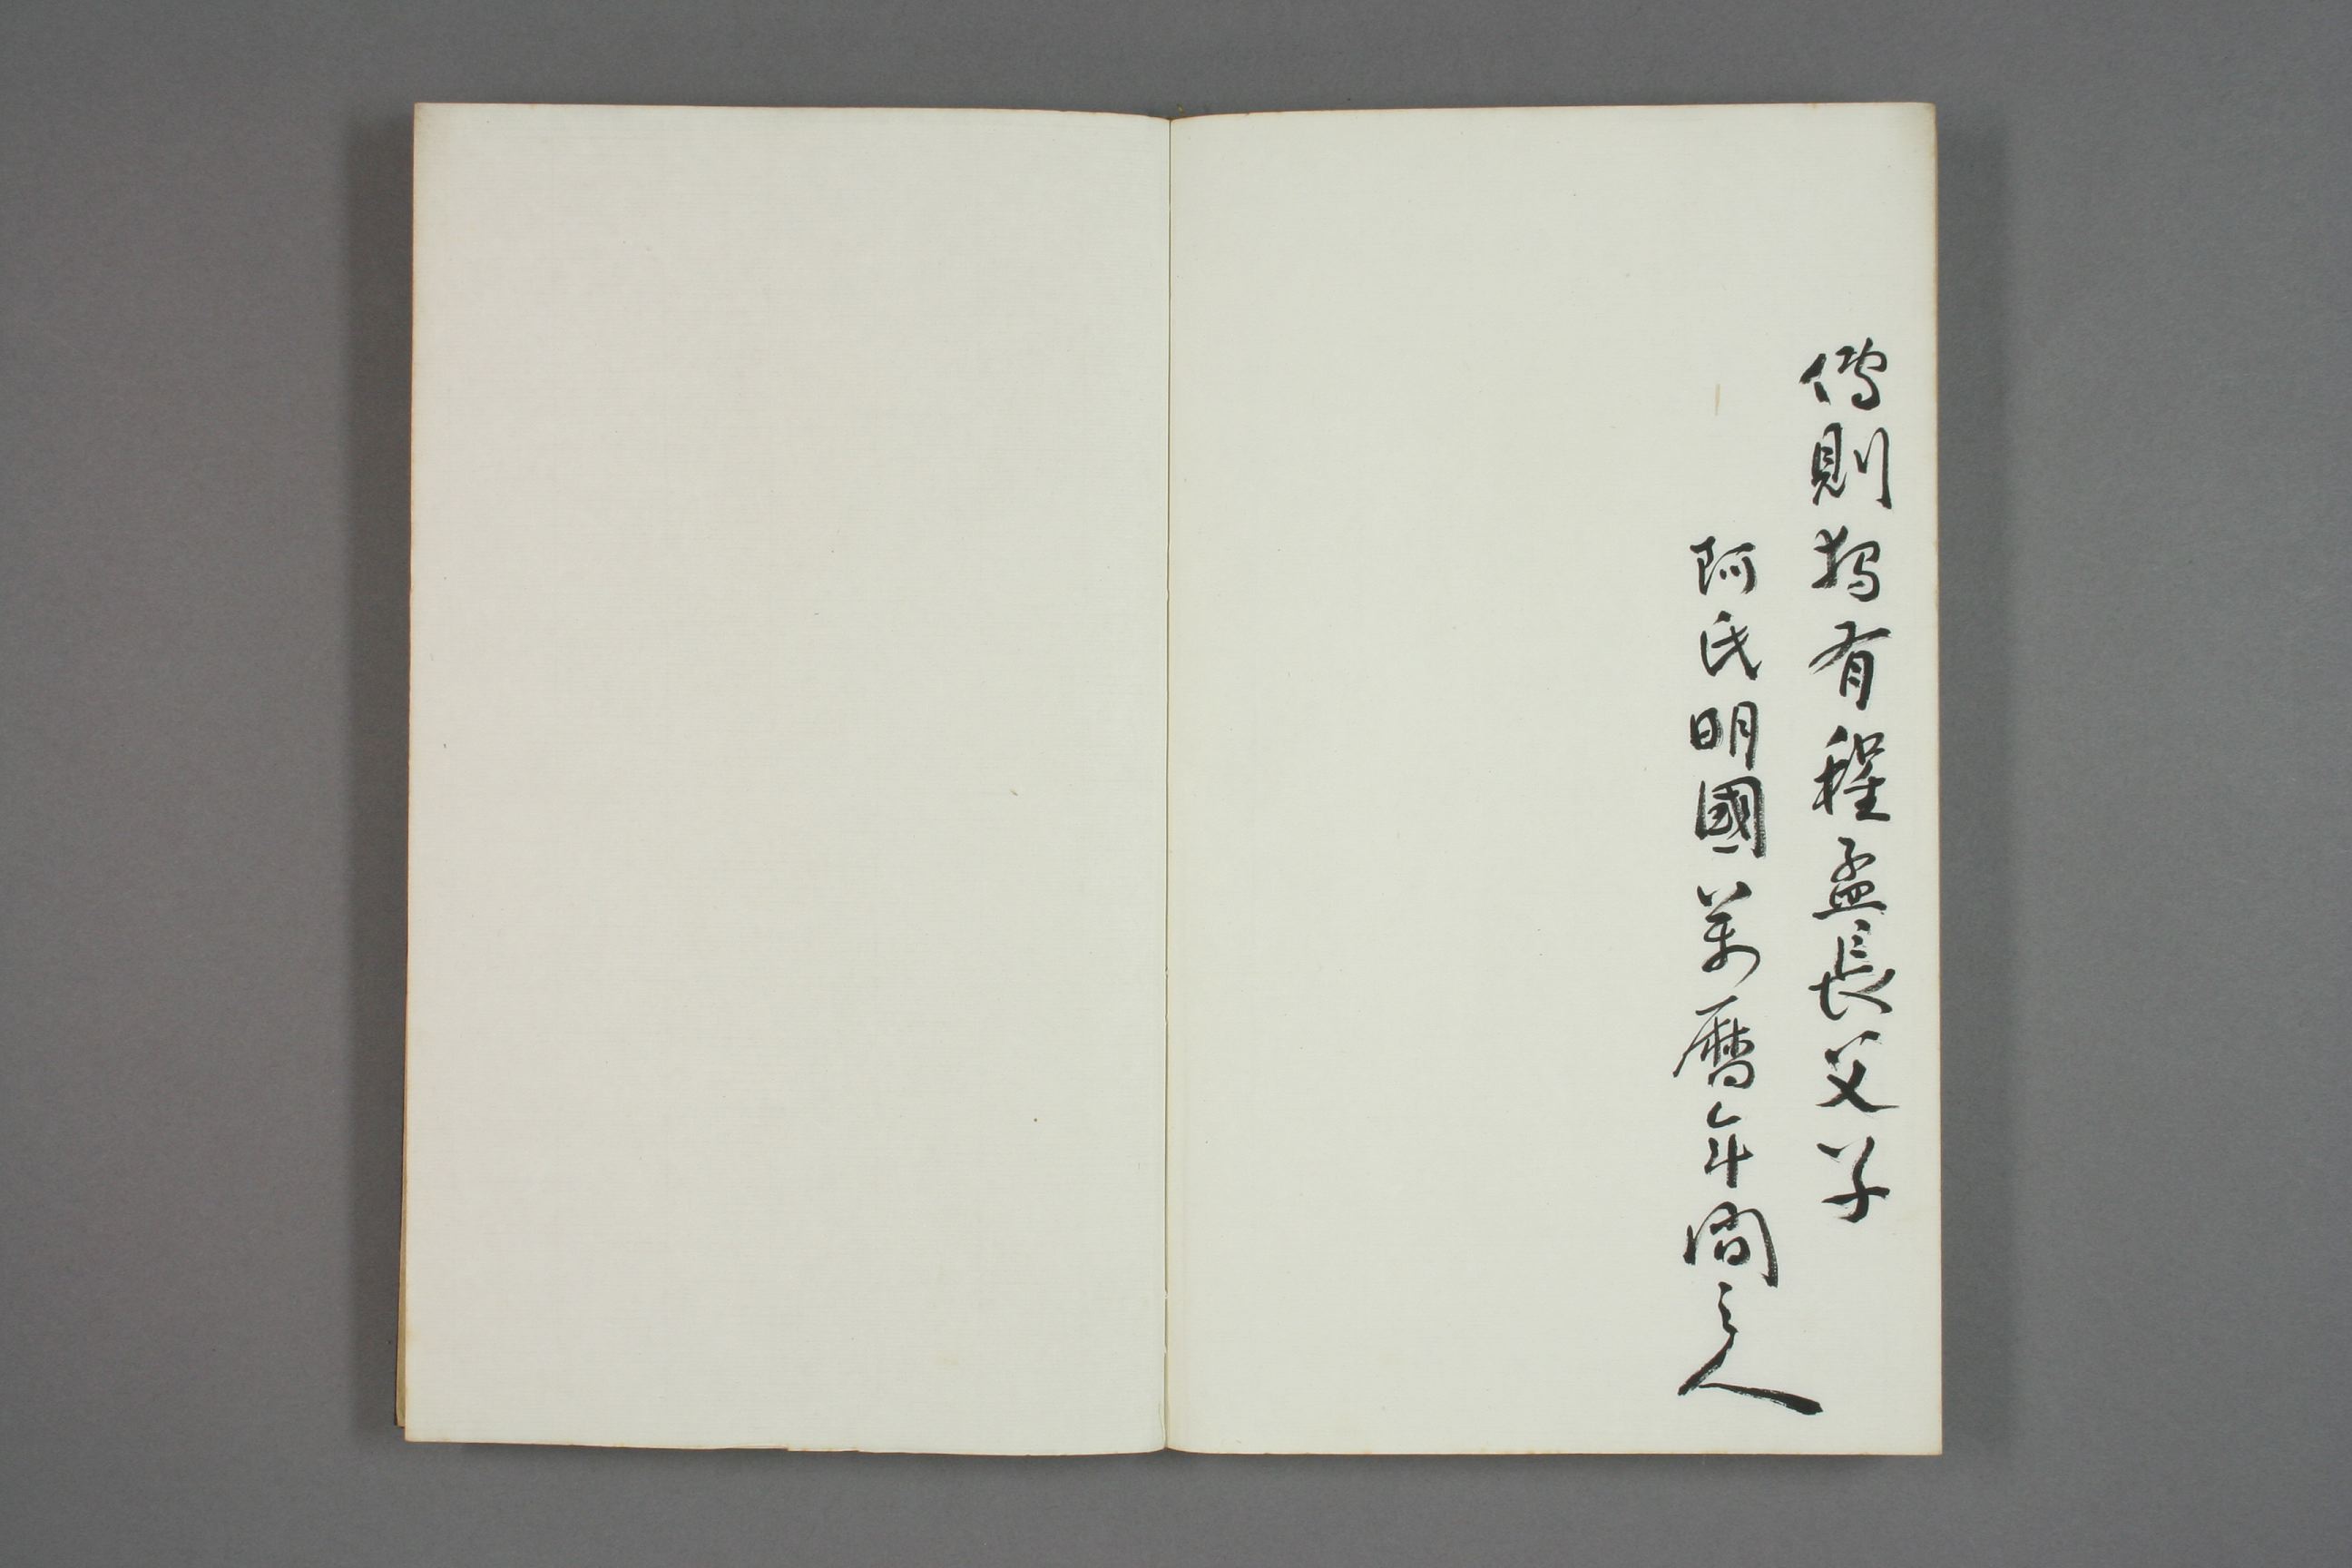 傳則獨有程孟長父子
阿氏明國萬曆年間之人